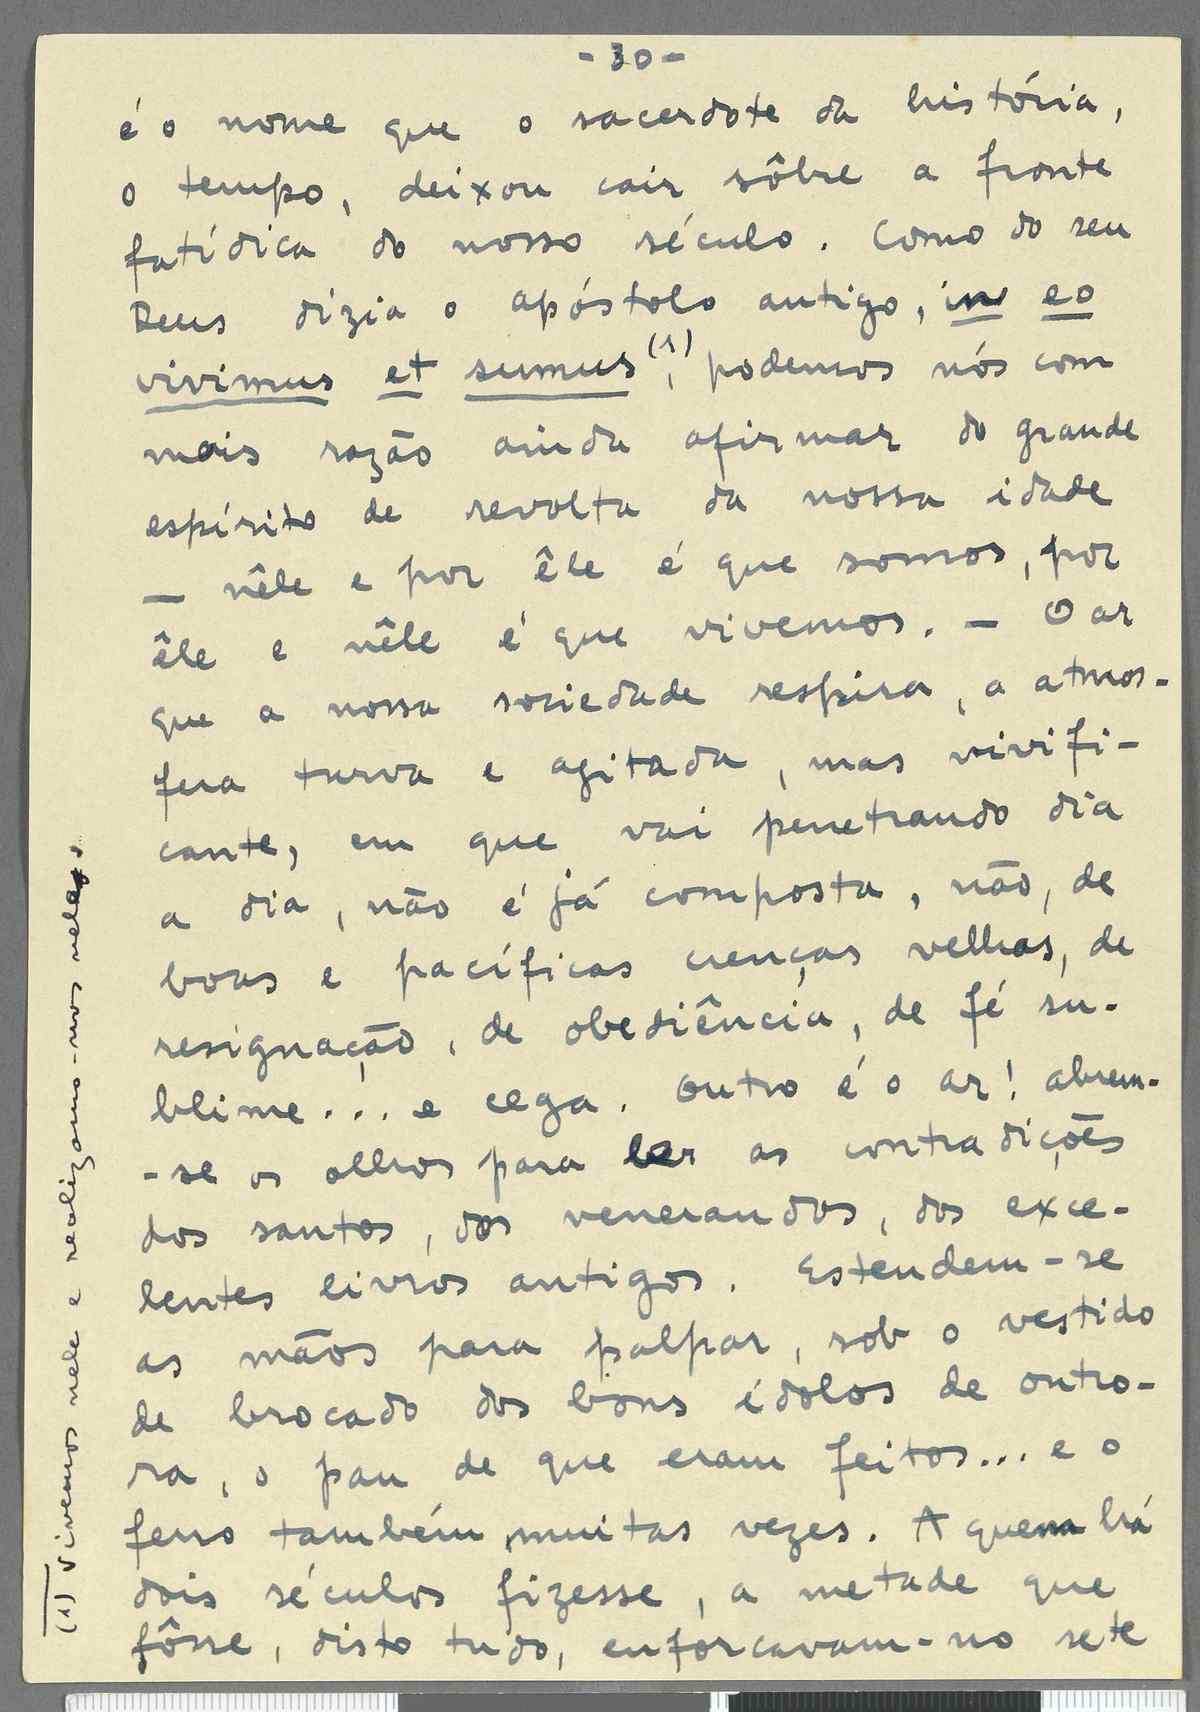 -30-
é o nome que o sacerdote da história,
o tempo, deixou cair sôbre a fronte
fatídica do nosso século. Como do seu
Deus dizia o apóstolo antigo, in eo
vivimus et sumus(1), podemos nós com
mais razão ainda afirmar do grande
espírito de revolta da nossa idade
— nêle e por êle é que somos, por
êle e nêle é que vivemos. — O ar
que a nossa sociedade respira, a atmos-
fera turva e agitada, mas vivifi-
cante, em que vai penetrando dia
a dia, não é já composta, não, de
boas e pacíficas crenças velhas, de
resignação, de obediência, de fé su-
blime... e cega. Outro é o ar! abrem-
-se os olhos para ler as contradições
dos santos, dos venerandos, dos exce-
lentes livros antigos. Estendem-se
as mãos para palpar, sob o vestido
de brocado dos bons ídolos de outro-
ra, o pau de que eram feitos... e o
ferro também muitas vezes. A quem há
dois séculos fizesse, a metade que
fôsse, disto tudo, enforcavam-no sete
(1) Vivemos nele e realizamo-nos nele.